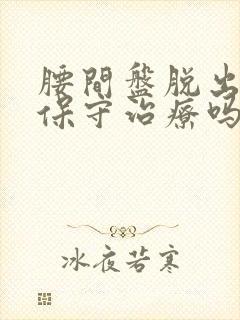 腰間盤脱出
保守治療吗
冰夜若寒